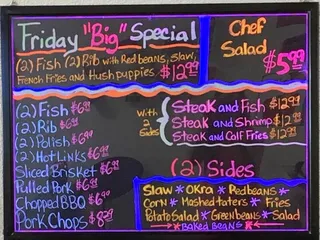 Friday "Big" Special
(2) Fish (2) Rib with Red beans, Slaw,
French Fries and Hush puppies $12.99
Chef
Salad
$5.99
(2) Fish $6.99
(2) Rib $6.99
(2) Polish $6.99
(2) Hot Links $6.99
Sliced Brisket $6.99
Pulled Pork $6.99
Chopped BBQ $6.99
Pork Chops $8.29
With
2
Sides
Steak and Fish $12.99
Steak and Shrimp $12.99
Steak and Calf Fries $12.99
(2) Sides
Slaw * Okra * Red beans *
Corn * Mashed taters * Fries
Potato Salad * Green beans * Salad
* Baked Beans *